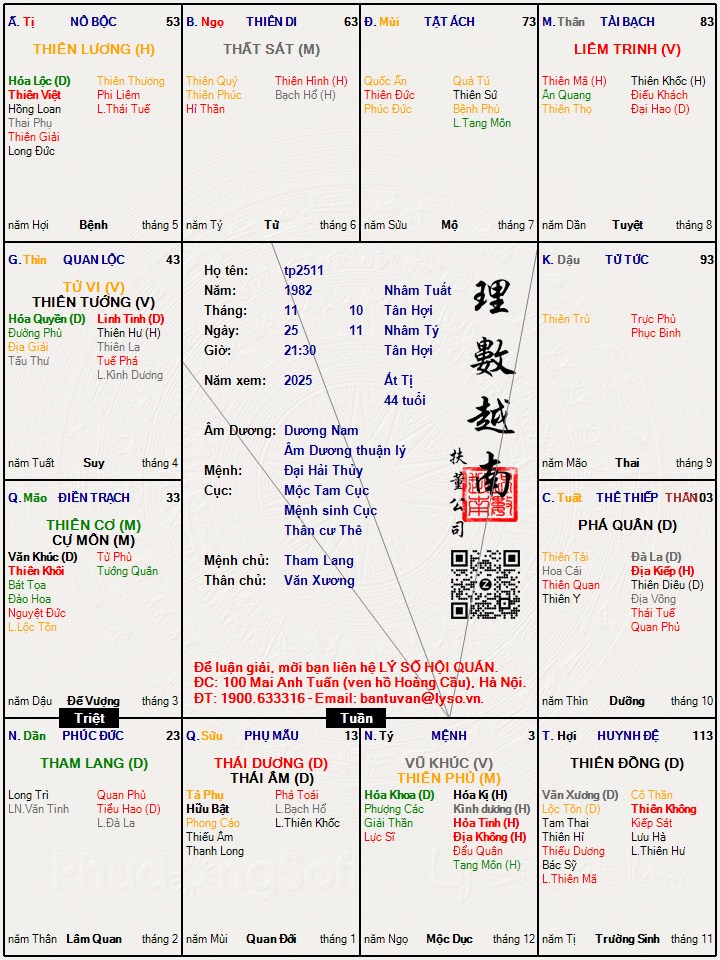 Ấ. Tị NÔ BỘC 53
THIÊN LƯƠNG (H)
Hóa Lộc (D) Thiên Thương
Thiên Việt Phi Liêm
Hồng Loan L.Thái Tuế
Thai Phụ
Thiên Giải
Long Đức
năm Hợi Bệnh tháng 5
B. Ngọ THIÊN DI 63
THẤT SÁT (M)
Thiên Quý Thiên Hình (H)
Thiên Phúc Bạch Hổ (H)
Hỉ Thần
năm Tý Tử tháng 6
Đ. Mùi TẬT ÁCH 73
Quốc Ấn Quả Tú
Thiên Đức Thiên Sứ
Phúc Đức Bệnh Phù
L.Tang Môn
năm Sửu Mộ tháng 7
M. Thân TÀI BẠCH 83
LIÊM TRINH (V)
Thiên Mã (H) Thiên Khốc (H)
Ân Quang Điếu Khách
Thiên Thọ Đại Hao (D)
năm Dần Tuyệt tháng 8
G. Thìn QUAN LỘC 43
TỬ VI (V)
THIÊN TƯỚNG (V)
Hóa Quyền (D) Linh Tinh (D)
Đường Phù Thiên Hư (H)
Địa Giải Thiên La
Tấu Thư Tuế Phá
L.Kình Dương
năm Tuất Suy tháng 4
Họ tên: tp2511
Năm: 1982 Nhâm Tuất
Tháng: 11 10 Tân Hợi
Ngày: 25 11 Nhâm Tý
Giờ: 21:30 Tân Hợi
Năm xem: 2025 Ất Tị
44 tuổi
Âm Dương: Dương Nam
Âm Dương thuận lý
Mệnh: Đại Hải Thủy
Cục: Mộc Tam Cục
Mệnh sinh Cục
Thân cư Thê
Mệnh chủ: Tham Lang
Thân chủ: Văn Xương
理數越南
扶董公司
Z
Để luận giải, mời bạn liên hệ LÝ SỐ HỘI QUÁN.
ĐC: 100 Mai Anh Tuấn (ven hồ Hoàng Cầu), Hà Nội.
ĐT: 1900.633316 - Email: bantuvan@lyso.vn.
K. Dậu TỬ TỨC 93
Thiên Trù Trực Phù
Phục Binh
năm Mão Thai tháng 9
Q. Mão ĐIỀN TRẠCH 33
THIÊN CƠ (M)
CỰ MÔN (M)
Văn Khúc (D) Tử Phù
Thiên Khôi Tướng Quân
Bát Tọa
Đào Hoa
Nguyệt Đức
L.Lộc Tồn
năm Dậu Đế Vượng tháng 3
C. Tuất THÊ THIẾP THÂN 103
PHÁ QUÂN (D)
Thiên Tài Đà La (D)
Hoa Cái Địa Kiếp (H)
Thiên Quan Thiên Diêu (D)
Thiên Y Địa Võng
Thái Tuế
Quan Phủ
năm Thìn Dưỡng tháng 10
Triệt
Tuần
N. Dần PHÚC ĐỨC 23
THAM LANG (D)
Long Trì Quan Phù
LN.Văn Tinh Tiểu Hao (D)
L.Đà La
năm Thân Lâm Quan tháng 2
Q. Sửu PHỤ MẪU 13
THÁI DƯƠNG (D)
THÁI ÂM (D)
Tả Phụ Phá Toái
Hữu Bật L.Bạch Hổ
Phong Cáo L.Thiên Khốc
Thiếu Âm
Thanh Long
năm Mùi Quan Đới tháng 1
N. Tý MỆNH 3
VŨ KHÚC (V)
THIÊN PHỦ (M)
Hóa Khoa (D) Hóa Kị (H)
Phượng Các Kình dương (H)
Giải Thần Hỏa Tinh (H)
Lực Sĩ Địa Không (H)
Đẩu Quân
Tang Môn (H)
năm Ngọ Mộc Dục tháng 12
T. Hợi HUYNH ĐỆ 113
THIÊN ĐỒNG (D)
Văn Xương (D) Cô Thần
Lộc Tồn (D) Thiên Không
Tam Thai Kiếp Sát
Thiên Hỉ Lưu Hà
Thiếu Dương L.Thiên Hư
Bác Sỹ
L.Thiên Mã
năm Tị Trường Sinh tháng 11